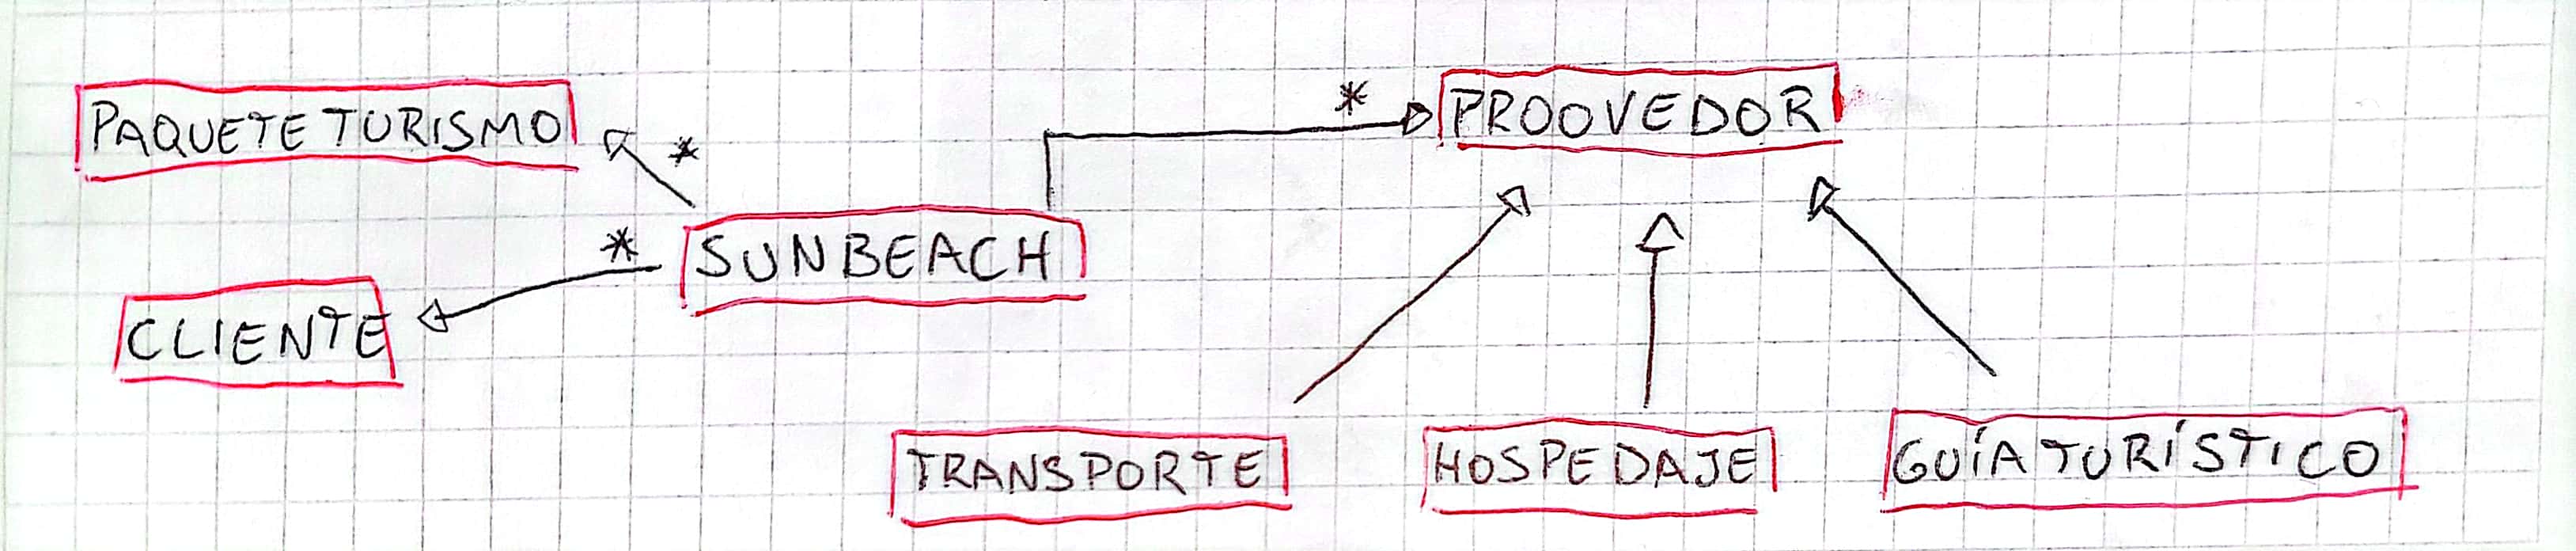 PAQUETE TURISMO
*
*
PROOVEDOR
SUNBEACH
*
CLIENTE
TRANSPORTE
HOSPEDAJE
GUÍA TURÍSTICO